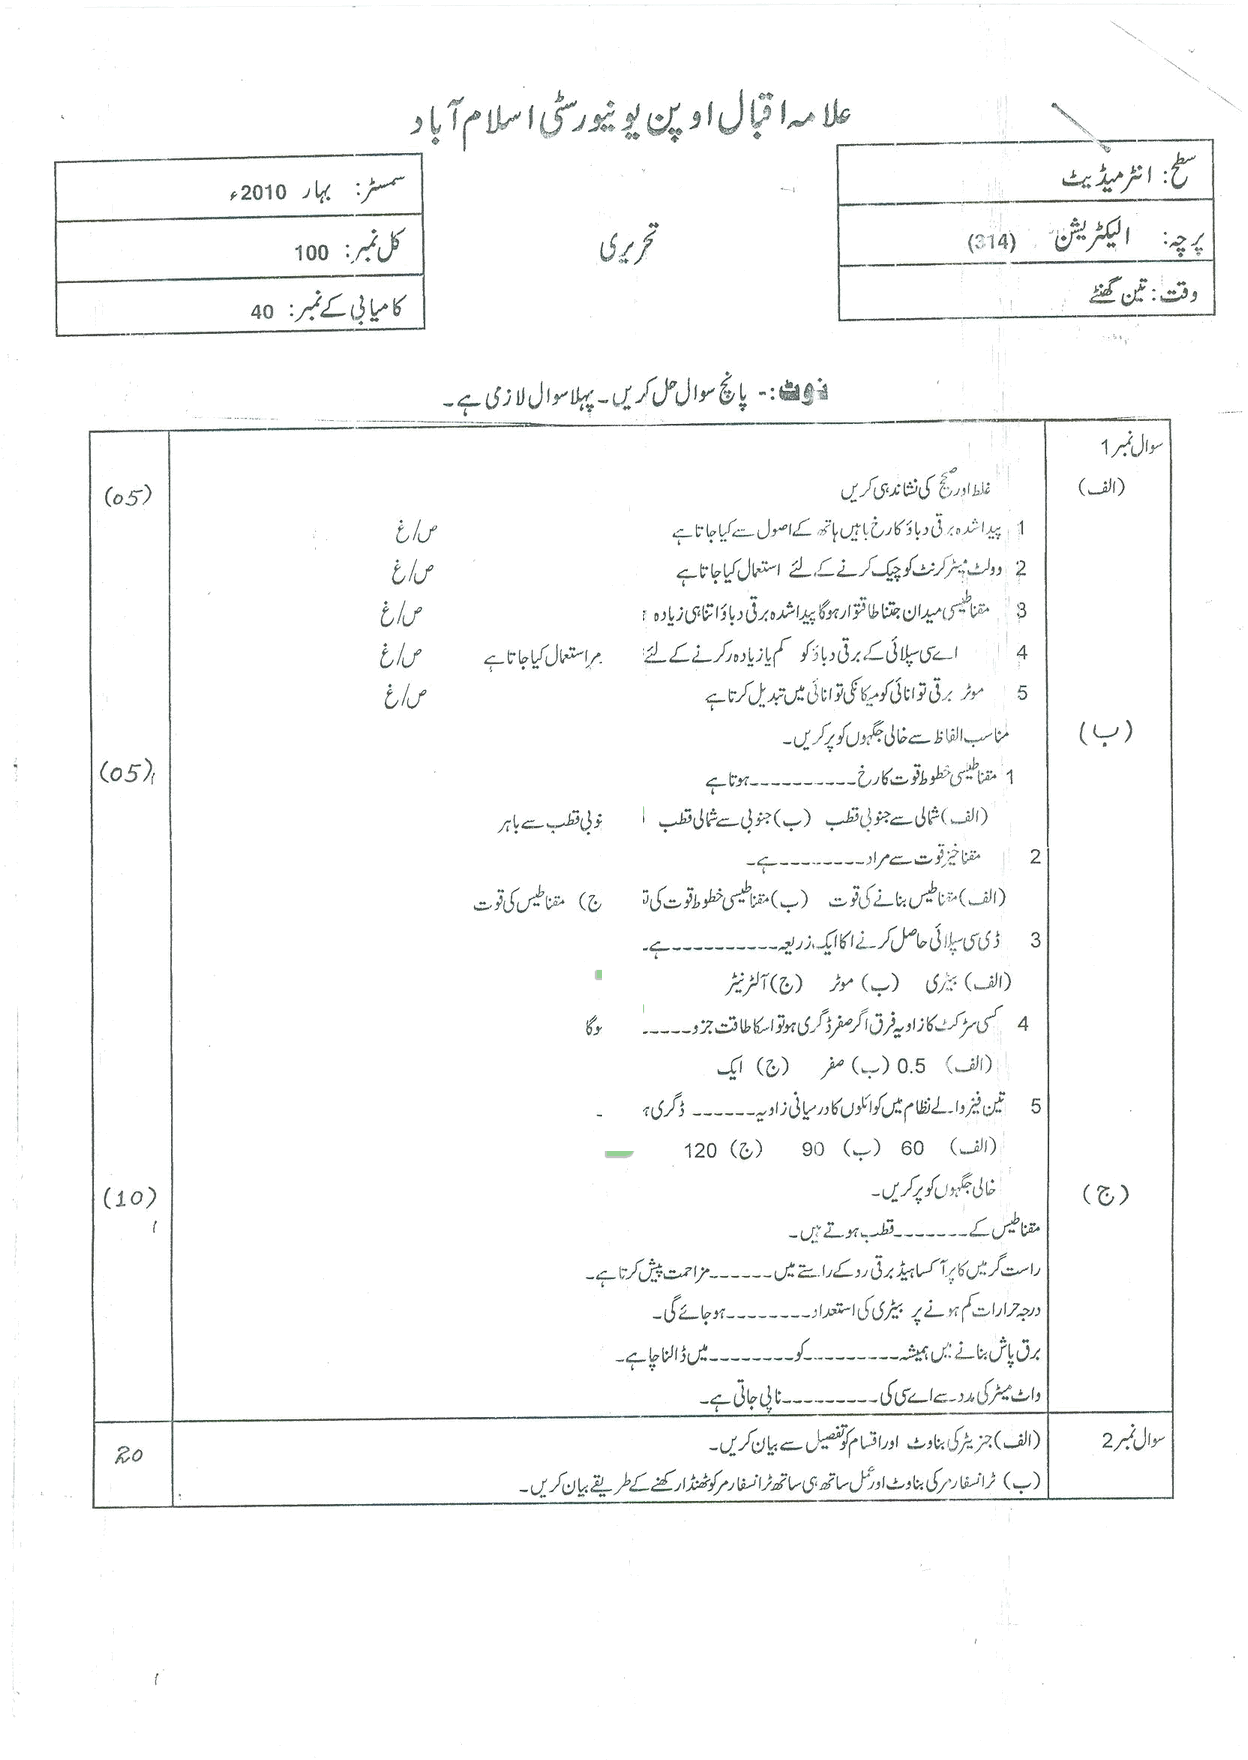 علامہ اقبال اوپن یونیورسٹی اسلام آباد
سطح: انٹرمیڈیٹ
پرچہ: الیکٹریشن (314)
وقت: تین گھنٹے
تحریری
سمسٹر: بہار 2010ء
کل نمبر: 100
کامیابی کے نمبر: 40
نوٹ:- پانچ سوال حل کریں۔ پہلا سوال لازمی ہے۔
سوال نمبر 1
(الف) غلط اور صحیح کی نشاندہی کریں (05)
1 پیدا شدہ برقی دباؤ کا رخ بائیں ہاتھ کے اصول سے کیا جاتا ہے ص/غ
2 وولٹ میٹر کرنٹ کو چیک کرنے کے لئے استعمال کیا جاتا ہے ص/غ
3 مقناطیسی میدان جتنا طاقتوار ہوگا پیدا شدہ برقی دباؤ اتنا ہی زیادہ ص/غ
4 اے سی سپلائی کے برقی دباؤ کو کم یا زیادہ رکرنے کے لئے مر استعمال کیا جاتا ہے ص/غ
5 موٹر برقی توانائی کو میکانکی توانائی میں تبدیل کرتا ہے ص/غ
(ب) مناسب الفاظ سے خالی جگہوں کو پر کریں۔ (05)
1 مقناطیسی خطوط قوت کا رخ ---------- ہوتا ہے
(الف) شمالی سے جنوبی قطب (ب) جنوبی سے شمالی قطب نوبی قطب سے باہر
2 مقناخیز قوت سے مراد -------- ہے۔
(الف) مقناطیس بنانے کی قوت (ب) مقناطیسی خطوط قوت کی ج) مقناطیس کی قوت
3 ڈی سی سپلائی حاصل کرنے اکا ایک زریعہ ----------- ہے۔
(الف) بیٹری (ب) موٹر (ج) آلٹرنیٹر
4 کسی سرکٹ کا زاویہ فرق اگر صفر ڈگری ہو تو اسکا طاقت جزو ----- وگا
(الف) 0.5 (ب) صفر (ج) ایک
5 تین فیز والے نظام میں کوائلوں کا درمیانی زاویہ ------ ڈگری
(الف) 60 (ب) 90 (ج) 120
(ج) خالی جگہوں کو پر کریں۔ (10)
مقناطیس کے ------- قطب ہوتے ہیں۔
راست گر میں کاپر آکسائیڈ برقی رو کے راستے میں ------ مزاحمت پیش کرتا ہے۔
درجہ حرارات کم ہونے پر بیٹری کی استعداد -------- ہو جائے گی۔
برق پاش بنانے میں ہمیشہ --------- کو -------- میں ڈالنا چاہے۔
واٹ میٹر کی مدد سے اے سی کی --------- ناپی جاتی ہے۔
سوال نمبر 2 (الف) جنریٹر کی بناوٹ اور اقسام کو تفصیل سے بیان کریں۔ 20
(ب) ٹرانسفارمر کی بناوٹ اور عمل ساتھ ہی ساتھ ٹرانسفارمر کو ٹھنڈا رکھنے کے طریقے بیان کریں۔